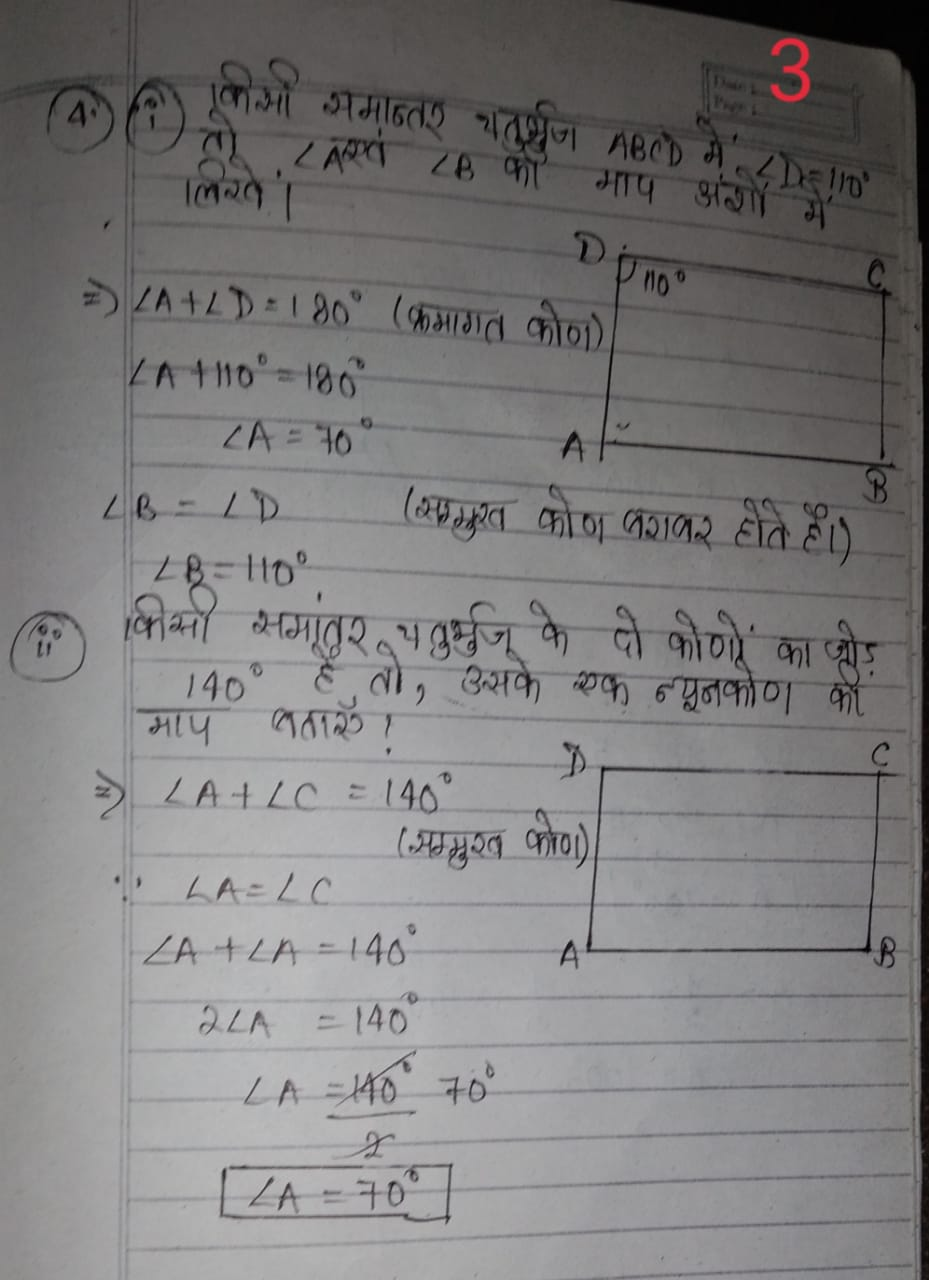 3
4. i किसी समान्तर चतुर्भुज ABCD में ∠D=110°
तो ∠A एवं ∠B को माप अंशों में
लिखें।
D 110° C
⇒ ∠A+∠D=180° (क्रमागत कोण)
∠A+110°=180°
∠A = 70°
A B
∠B = ∠D (सम्मुख कोण बराबर होते हैं।)
∠B=110°
ii किसी समांतर चतुर्भुज के दो कोणों का जोड़
140° है तो, उसके एक न्यूनकोण की
माप बताएँ!
D C
⇒ ∠A+∠C = 140°
(सम्मुख कोण)
∵ ∠A=∠C
∠A+∠A=140°
A B
2∠A = 140°
∠A = 140° 70°
2
∠A = 70°